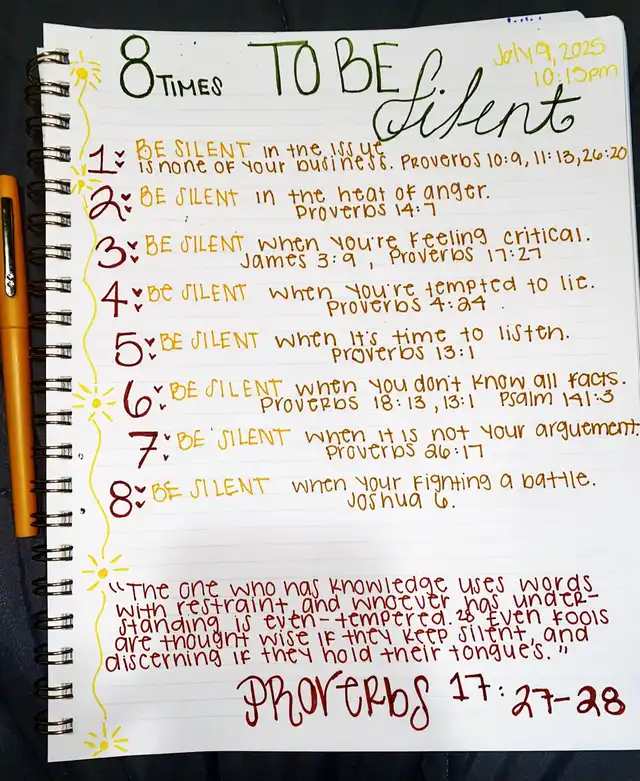 8 TIMES TO BE Silent
July 9, 2025
10:15pm
1 BE SILENT in the issue
is none of your business. Proverbs 10:9, 11:13, 26:20
2 BE SILENT in the heat of anger.
Proverbs 14:7
3 BE SILENT when you're feeling critical.
James 3:9, Proverbs 17:27
4 BE SILENT when you're tempted to lie.
Proverbs 4:24
5 BE SILENT when it's time to listen.
Proverbs 13:1
6 BE SILENT when you don't know all facts.
Proverbs 18:13, 13:1 Psalm 141:3
7 BE SILENT when it is not your arguement.
Proverbs 26:17
8 BE SILENT when your fighting a battle.
Joshua 6.
"The one who has knowledge uses words
with restraint, and whoever has under-
standing is even-tempered. 28 Even fools
are thought wise if they keep silent, and
discerning if they hold their tongue's."
PROVERBS 17:27-28